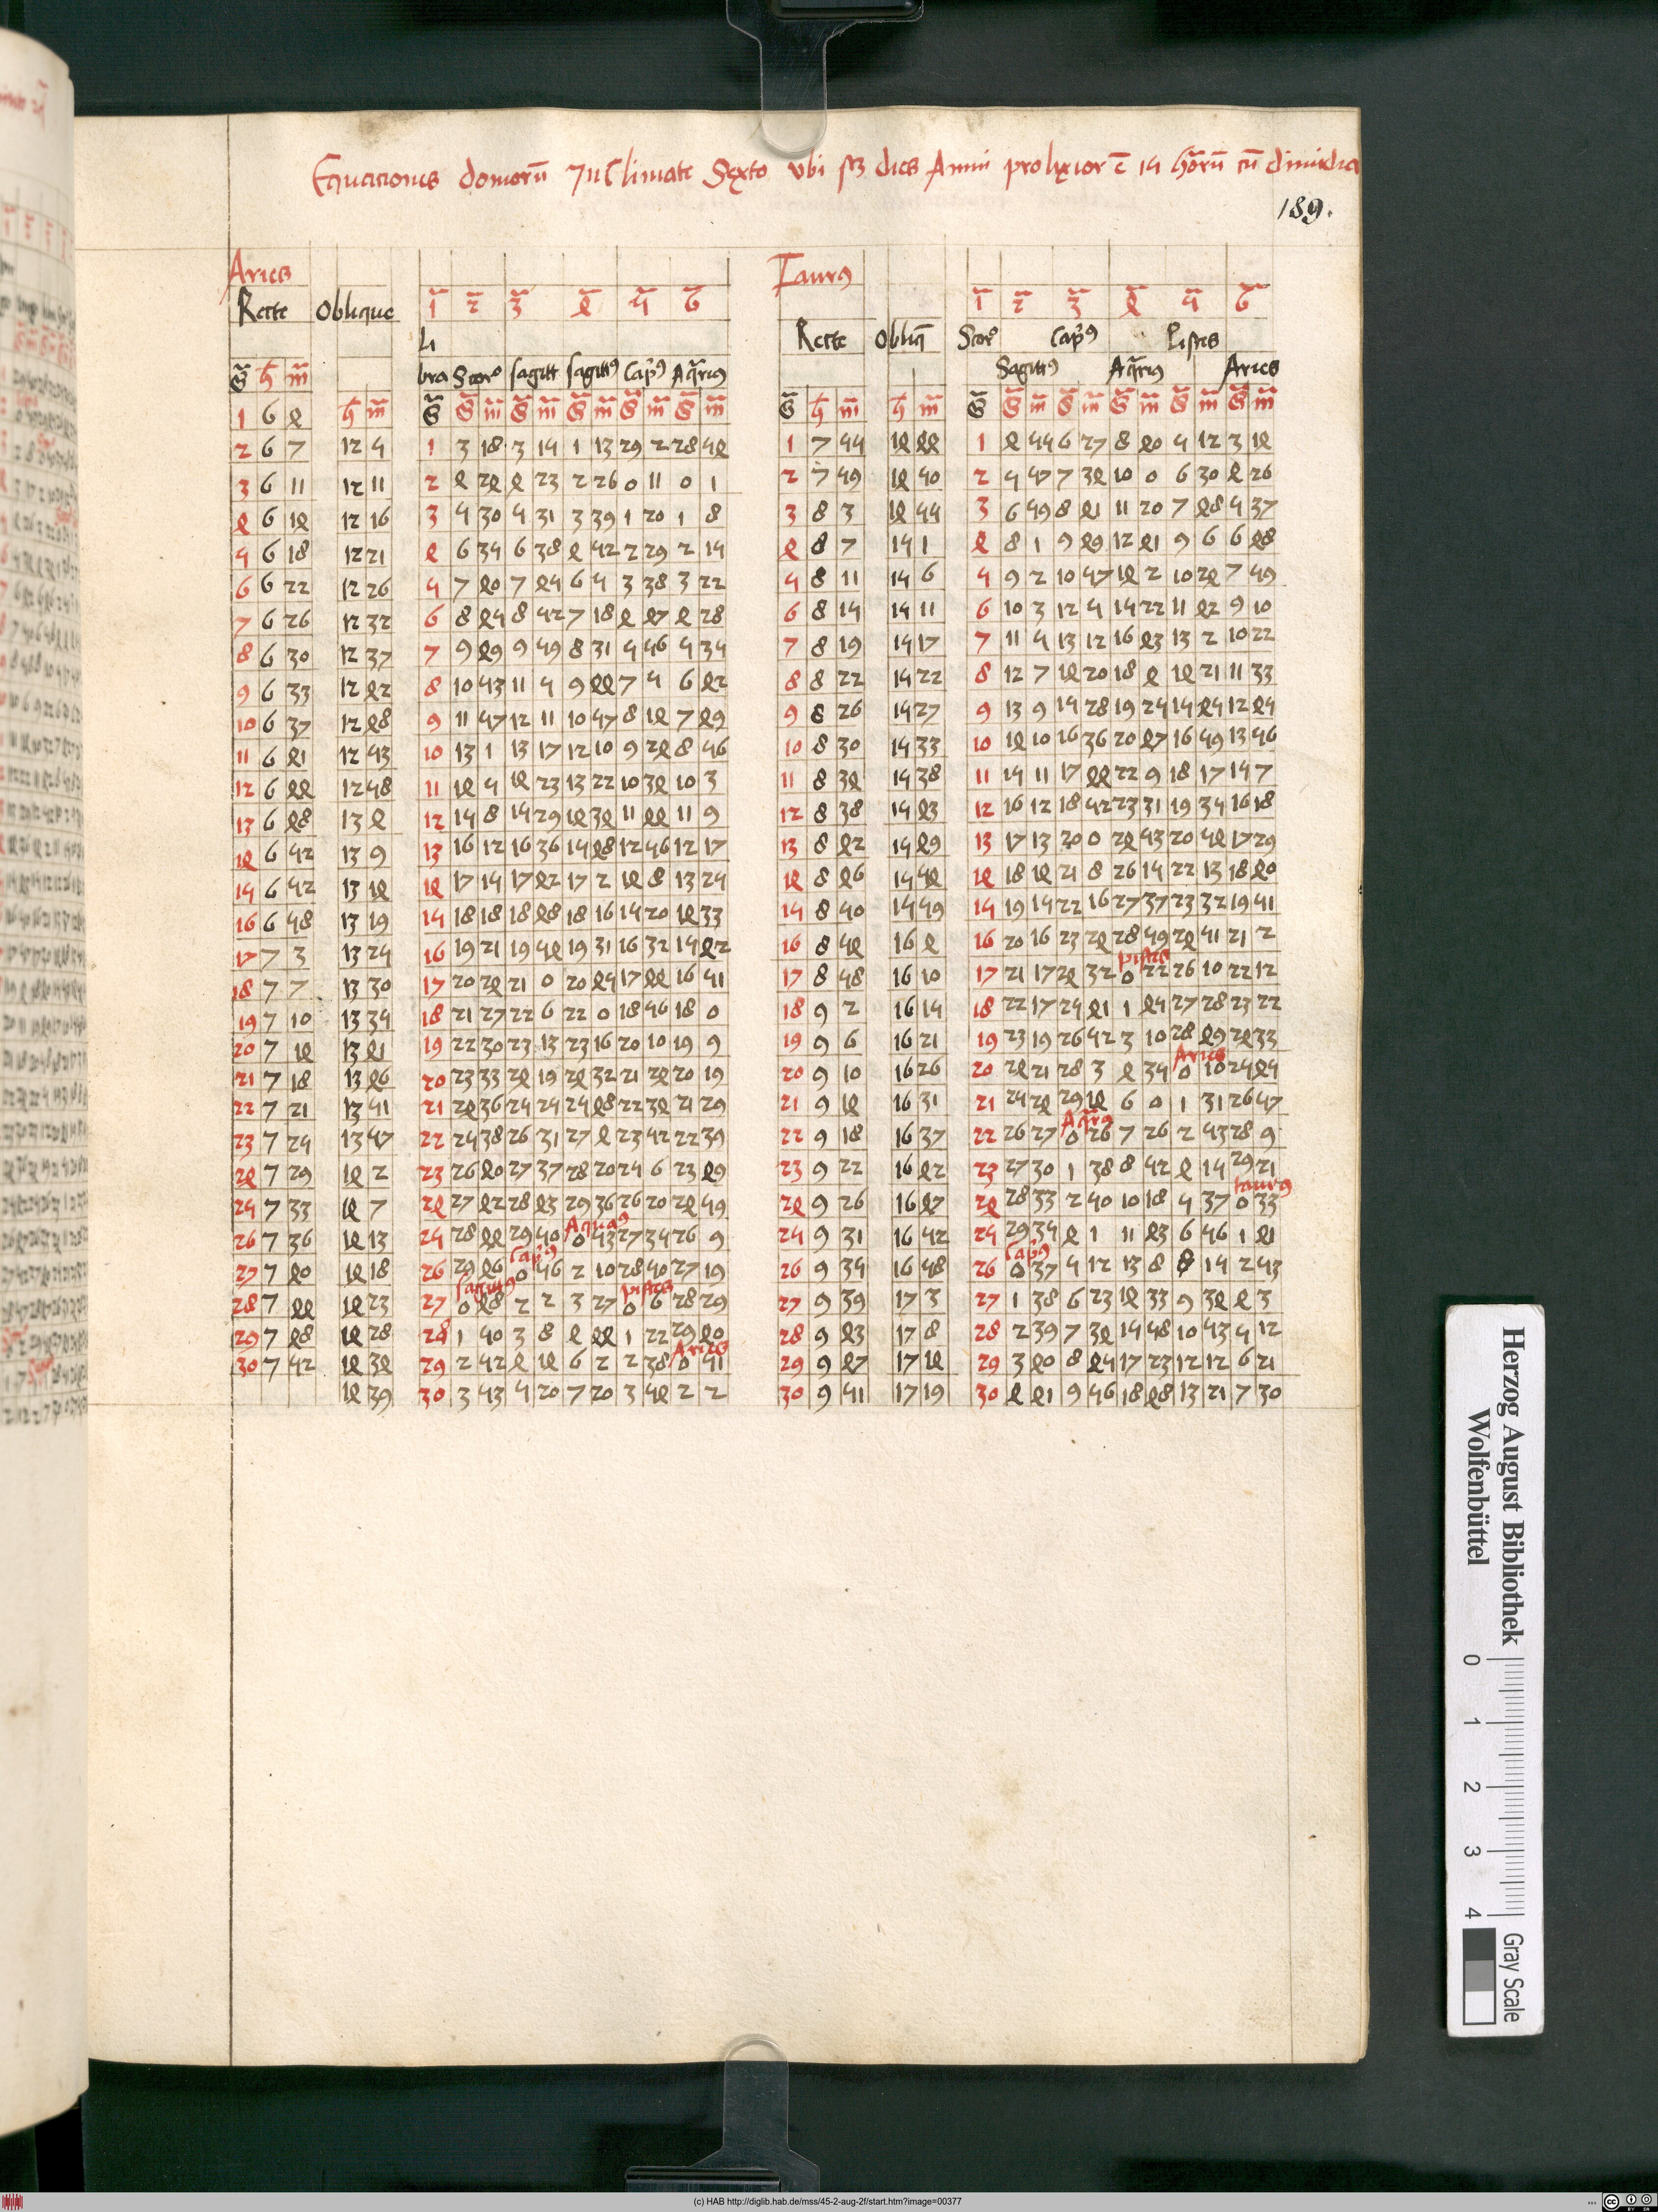 Equaciones domorū In Climate Sexto vbi sz dies Anni prolixior ē 15 horū cū dimidia
189.
Aries Taurꝰ
Recte Oblique 1 2 3 4 5 6 1 2 3 4 5 6
Li Recte Obliq̄ Scor Capꝰ Pisces
bra Scor sagitt sagittꝰ Capꝰ Aq̄rius Sagittꝰ Aq̄rius Aries
G h m
1 6 4 h m G G m G m G m G m G m G h m h m G G m G m G m G m G m
2 6 7 12 5 1 3 18 3 15 1 13 29 2 28 54 1 7 55 14 44 1 4 55 6 27 8 40 5 12 3 14
3 6 11 12 11 2 4 24 4 23 2 26 0 11 0 1 2 7 59 14 50 2 5 57 7 34 10 0 6 30 4 26
4 6 14 12 16 3 5 30 5 31 3 39 1 20 1 8 3 8 3 14 55 3 6 59 8 41 11 20 7 48 5 37
5 6 18 12 21 4 6 35 6 38 4 52 2 29 2 15 4 8 7 15 1 4 8 1 9 49 12 41 9 6 6 48
6 6 22 12 26 5 7 40 7 45 6 5 3 38 3 22 5 8 11 15 6 5 9 2 10 57 14 2 10 24 7 59
7 6 26 12 32 6 8 45 8 52 7 18 4 47 4 28 6 8 15 15 11 6 10 3 12 5 15 22 11 42 9 10
8 6 30 12 37 7 9 49 9 59 8 31 5 56 5 35 7 8 19 15 17 7 11 5 13 12 16 43 13 2 10 22
9 6 33 12 42 8 10 53 11 5 9 44 7 5 6 42 8 8 22 15 22 8 12 7 14 20 18 4 14 21 11 33
10 6 37 12 48 9 11 57 12 11 10 57 8 14 7 49 9 8 26 15 27 9 13 9 15 28 19 25 15 45 12 45
11 6 41 12 53 10 13 1 13 17 12 10 9 24 8 56 10 8 30 15 33 10 14 10 16 36 20 47 16 59 13 56
12 6 44 12 58 11 14 5 14 23 13 22 10 34 10 3 11 8 34 15 38 11 15 11 17 44 22 9 18 17 15 7
13 6 48 13 4 12 15 8 15 29 14 34 11 44 11 9 12 8 38 15 43 12 16 12 18 52 23 31 19 35 16 18
14 6 52 13 9 13 16 12 16 36 15 48 12 56 12 17 13 8 42 15 49 13 17 13 20 0 24 53 20 54 17 29
15 6 52 13 14 14 17 15 17 42 17 2 14 8 13 25 14 8 46 15 54 14 18 14 21 8 26 15 22 13 18 40
16 6 58 13 19 15 18 18 18 48 18 16 15 20 14 33 15 8 50 15 59 15 19 15 22 16 27 37 23 32 19 51
17 7 3 13 25 16 19 21 19 54 19 31 16 32 15 42 16 8 54 16 4 16 20 16 23 24 28 59 24 51 21 2
pisces
18 7 7 13 30 17 20 24 21 0 20 45 17 44 16 51 17 8 58 16 10 17 21 17 24 32 0 22 26 10 22 12
19 7 10 13 35 18 21 27 22 6 22 0 18 56 18 0 18 9 2 16 15 18 22 17 25 41 1 45 27 28 23 22
20 7 14 13 41 19 22 30 23 13 23 16 20 10 19 9 19 9 6 16 21 19 23 19 26 52 3 10 28 49 24 33
Aries
21 7 18 13 46 20 23 33 24 19 24 32 21 24 20 19 20 9 10 16 26 20 24 21 28 3 4 35 0 10 25 45
22 7 21 13 51 21 24 36 25 25 25 48 22 34 21 29 21 9 14 16 31 21 25 24 29 14 6 0 1 31 26 57
Aq̄rꝰ
23 7 25 13 57 22 25 38 26 31 27 4 23 52 22 39 22 9 18 16 37 22 26 27 0 26 7 26 2 53 28 9
24 7 29 14 2 23 26 40 27 37 28 20 25 6 23 49 23 9 22 16 42 23 27 30 1 38 8 52 4 15 29 21
taurꝰ
25 7 33 14 7 24 27 42 28 43 29 36 26 20 24 59 24 9 26 16 47 24 28 33 2 50 10 18 5 37 0 33
Aquaꝰ
26 7 36 14 13 25 28 44 29 50 0 53 27 35 26 9 25 9 31 16 52 25 29 35 4 1 11 43 6 56 1 41
Capꝰ Capꝰ
27 7 40 14 18 26 29 46 0 56 2 10 28 50 27 19 26 9 35 16 58 26 0 37 5 12 13 8 8 15 2 53
sagittꝰ pisces
28 7 44 14 23 27 0 48 2 2 3 27 0 6 28 29 27 9 39 17 3 27 1 38 6 23 14 33 9 34 4 3
29 7 48 14 28 28 1 50 3 8 4 44 1 22 29 40 28 9 43 17 8 28 2 39 7 34 15 58 10 53 5 12
Aries
30 7 52 14 34 29 2 52 4 14 6 2 2 38 0 51 29 9 47 17 14 29 3 40 8 45 17 23 12 12 6 21
14 39 30 3 53 5 20 7 20 3 54 2 2 30 9 51 17 19 30 4 41 9 56 18 48 13 21 7 30
Herzog August Bibliothek
Wolfenbüttel
0 1 2 3 4
Gray Scale
(c) HAB http://diglib.hab.de/mss/45-2-aug-2f/start.htm?image=00377